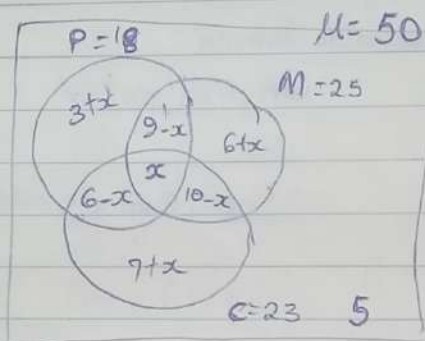 P = 18
μ = 50
M = 25
3+x
9-x
6+x
x
6-x
10-x
7+x
C = 23
5